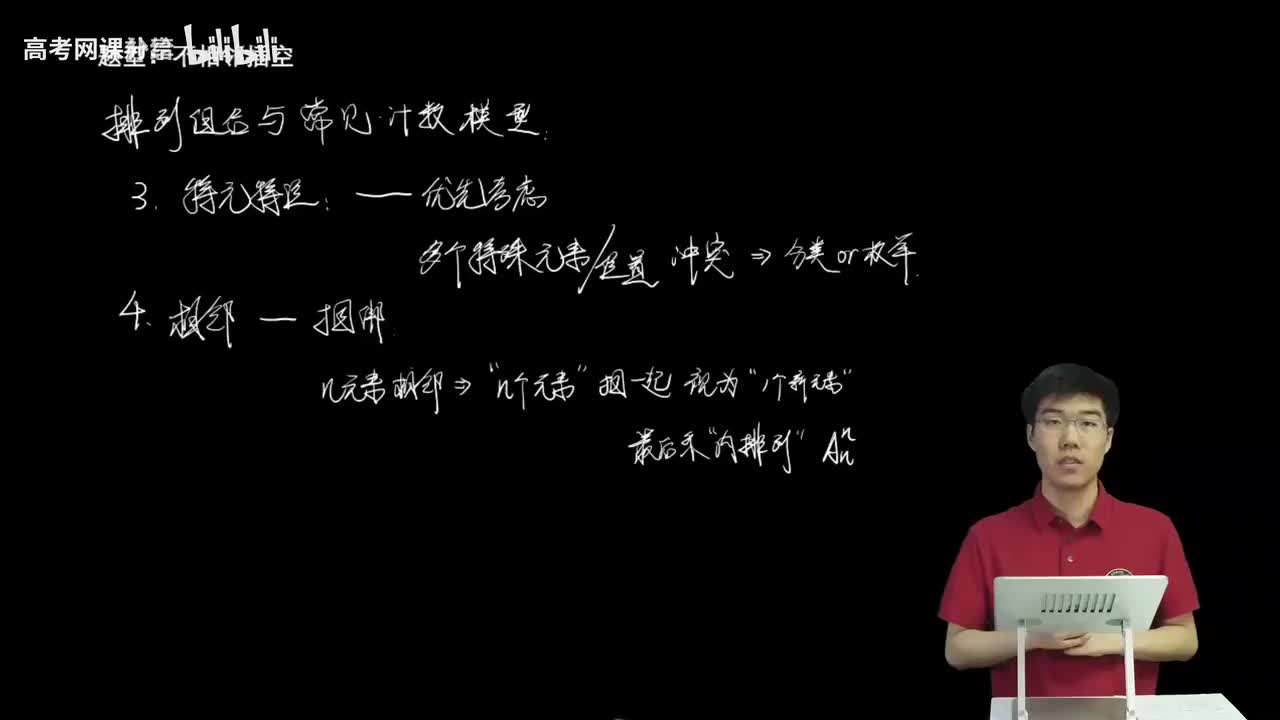 高考网课补给 bilibili
题型：不相邻插空
排列组合与常见计数模型.
3. 特元特位：— 优先考虑
多个特殊元素/位置 冲突 ⇒ 分类 or 枚举.
4. 相邻 — 捆绑.
n元素相邻 ⇒ "n个元素" 捆一起 视为 "1个新元素"
最后乘"内排列" Aₙⁿ